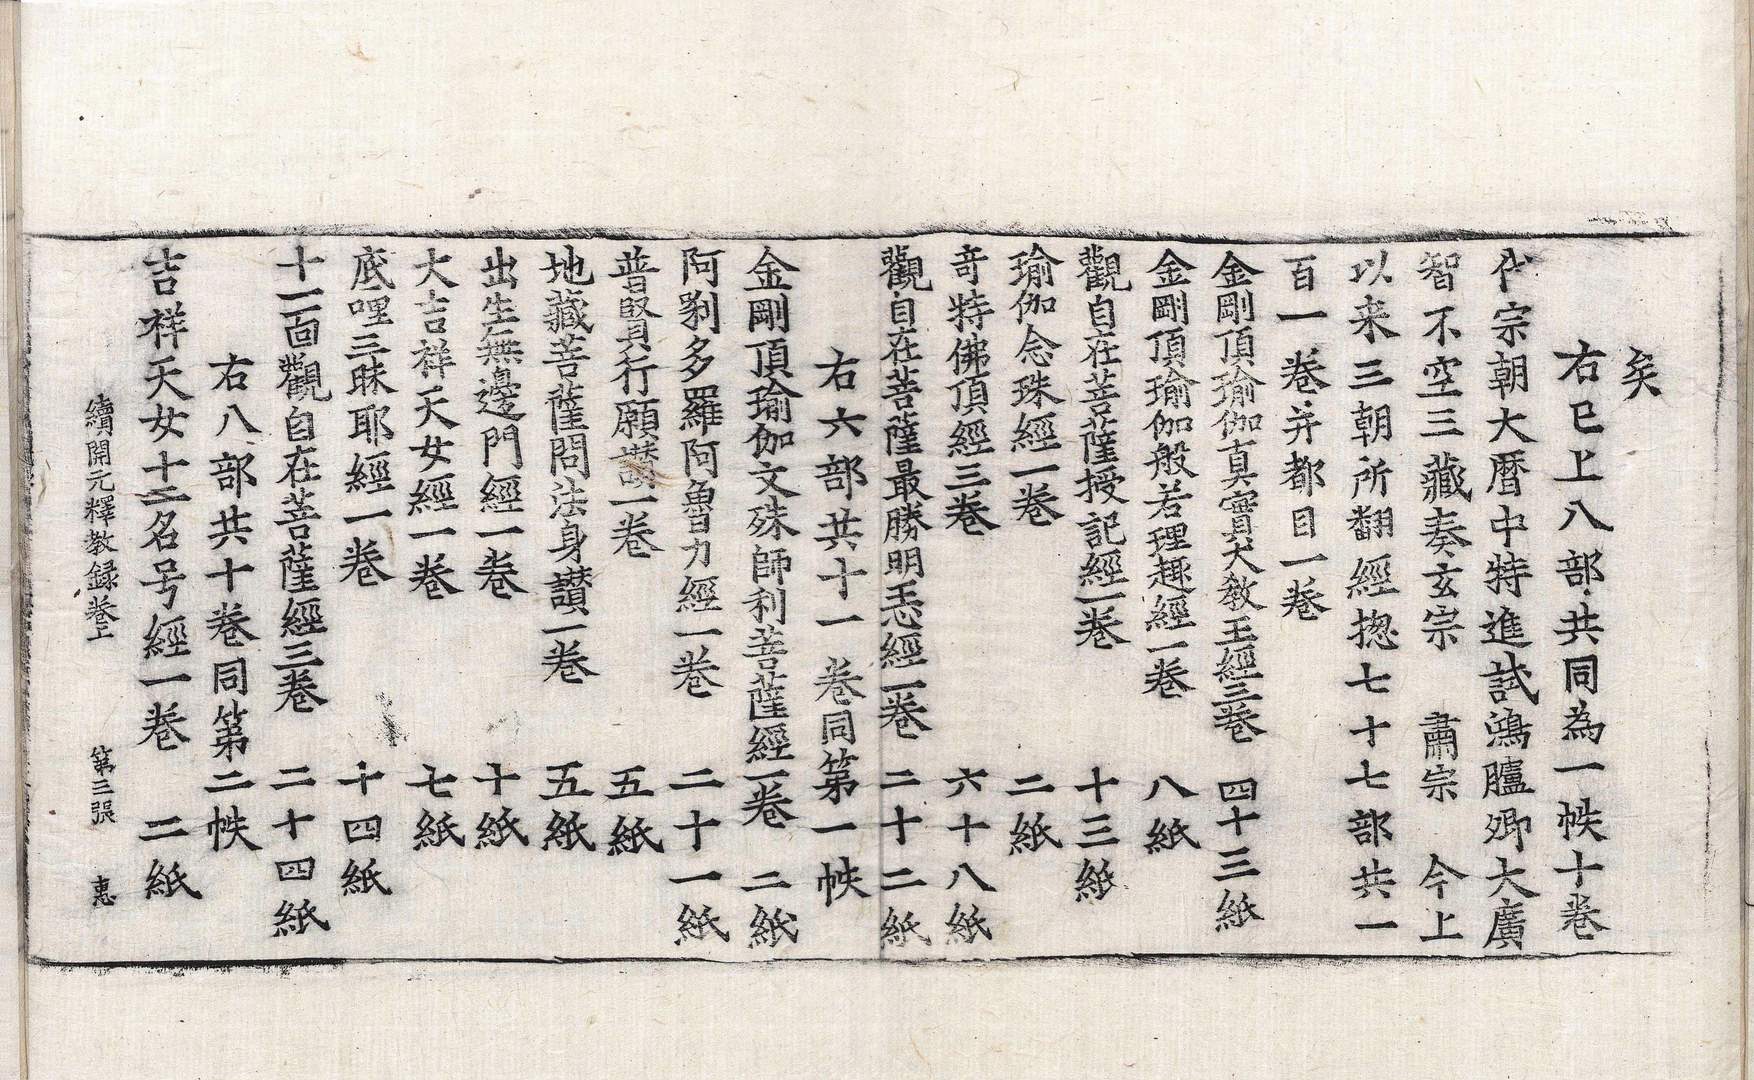 矣
右已上八部共同為一帙十卷
代宗朝大曆中特進試鴻臚卿大廣
智不空三藏奏玄宗　肅宗　今上
以来三朝所翻經揔七十七部共一
百一卷并都目一卷
金剛頂瑜伽真實大教王經三卷　四十三紙
金剛頂瑜伽般若理趣經一卷　八紙
觀自在菩薩授記經一卷　十三紙
瑜伽念珠經一卷　二紙
奇特佛頂經三卷　六十八紙
觀自在菩薩最勝明王經一卷　二十二紙
右六部共十一卷同第一帙
金剛頂瑜伽文殊師利菩薩經一卷　二紙
阿唎多羅阿魯力經一卷　二十一紙
普賢行願讚一卷　五紙
地藏菩薩問法身讃一卷　五紙
出生無邊門經一卷　十紙
大吉祥天女經一卷　七紙
底哩三昧耶經一卷　十四紙
十一面觀自在菩薩經三卷　二十四紙
右八部共十卷同第二帙
吉祥天女十二名号經一卷　二紙
續開元釋教録卷上　第三張　惠